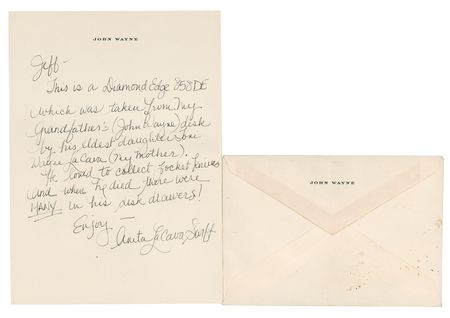 JOHN WAYNE
Jeff-
This is a Diamond Edge 858DE
which was taken from my
Grandfather's (John Wayne) disk
by his eldest daughter Toni
Wayne La Cava (my mother).
He loved to collect pocket knives
and when he died there were
MANY in his disk drawers!
Enjoy —
Anita LaCava Swift
JOHN WAYNE